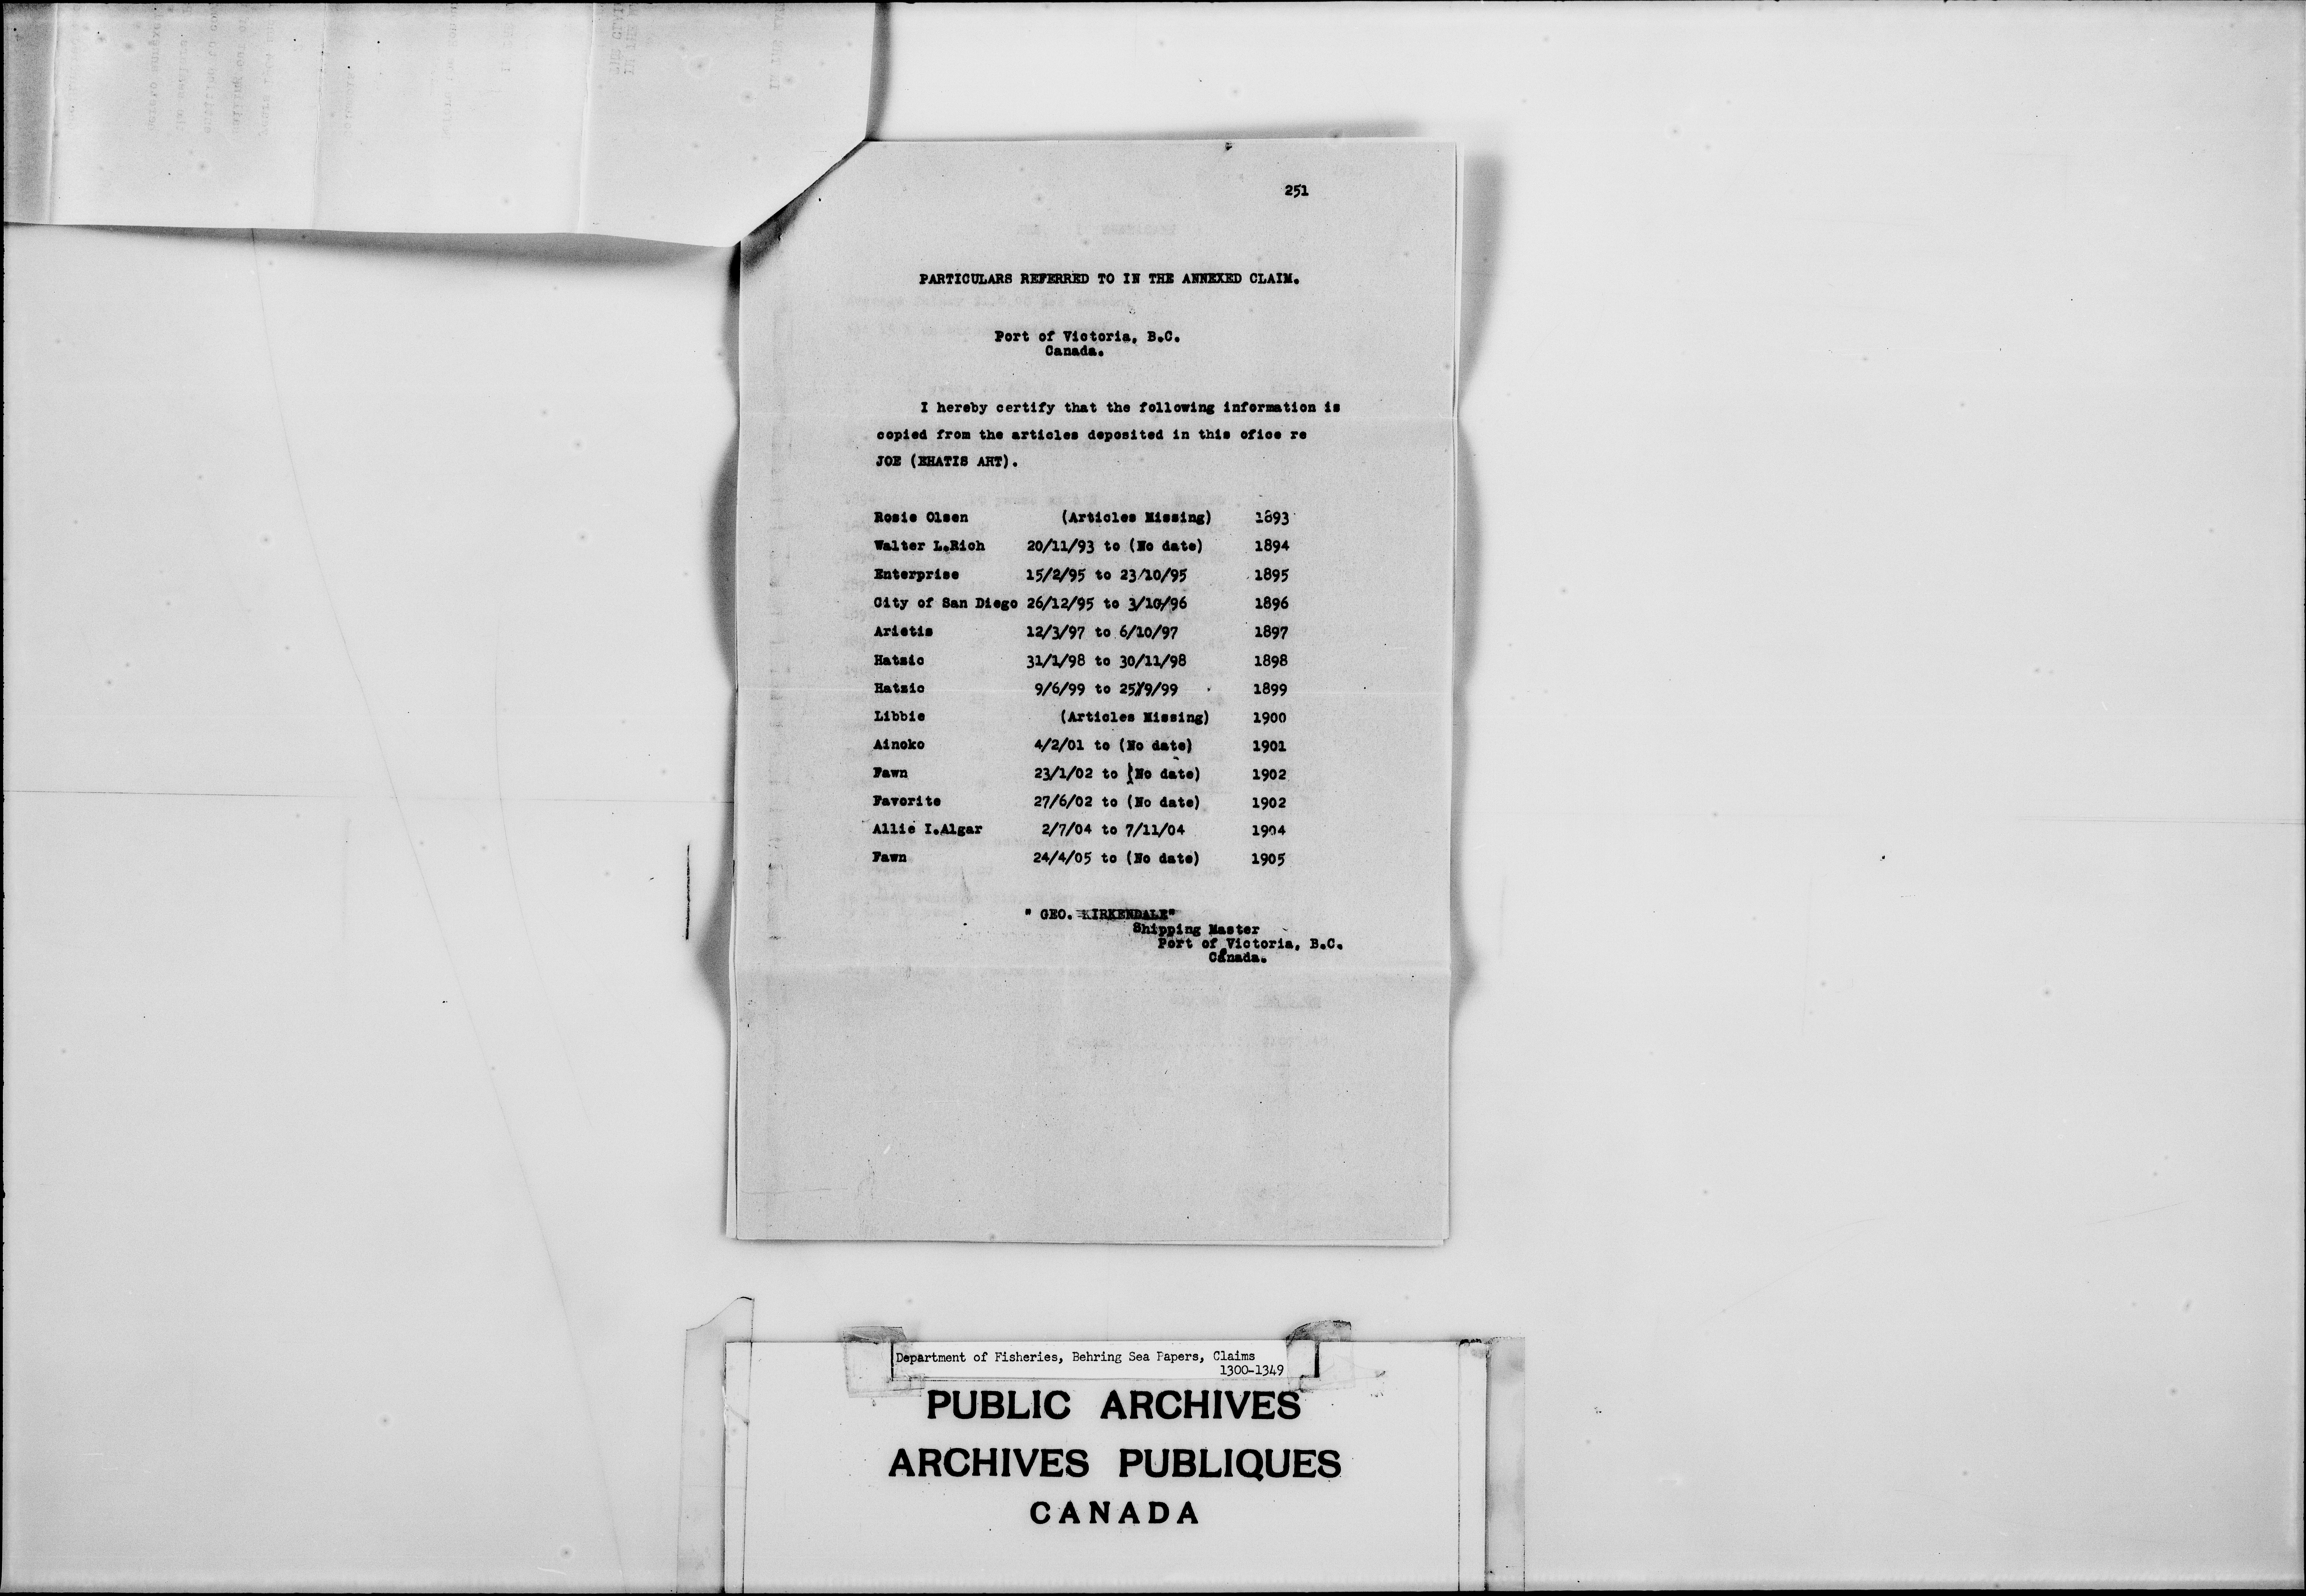 251
PARTICULARS REFERRED TO IN THE ANNEXED CLAIM.
Port of Victoria, B.C.
Canada.
I hereby certify that the following information is
copied from the articles deposited in this ofice re
JOE (EHATIS AHT).
Rosie Olsen (Articles Missing) 1893
Walter L.Rich 20/11/93 to (No date) 1894
Enterprise 15/2/95 to 23/10/95 1895
City of San Diego 26/12/95 to 3/10/96 1896
Arietis 12/3/97 to 6/10/97 1897
Hatzic 31/1/98 to 30/11/98 1898
Hatzic 9/6/99 to 25/9/99 1899
Libbie (Articles Missing) 1900
Ainoko 4/2/01 to (No date) 1901
Fawn 23/1/02 to (No date) 1902
Favorite 27/6/02 to (No date) 1902
Allie I.Algar 2/7/04 to 7/11/04 1904
Fawn 24/4/05 to (No date) 1905
" GEO. KIRKENDALE"
Shipping Master
Port of Victoria, B.C.
Canada.
Department of Fisheries, Behring Sea Papers, Claims
1300-1349
PUBLIC ARCHIVES
ARCHIVES PUBLIQUES
CANADA